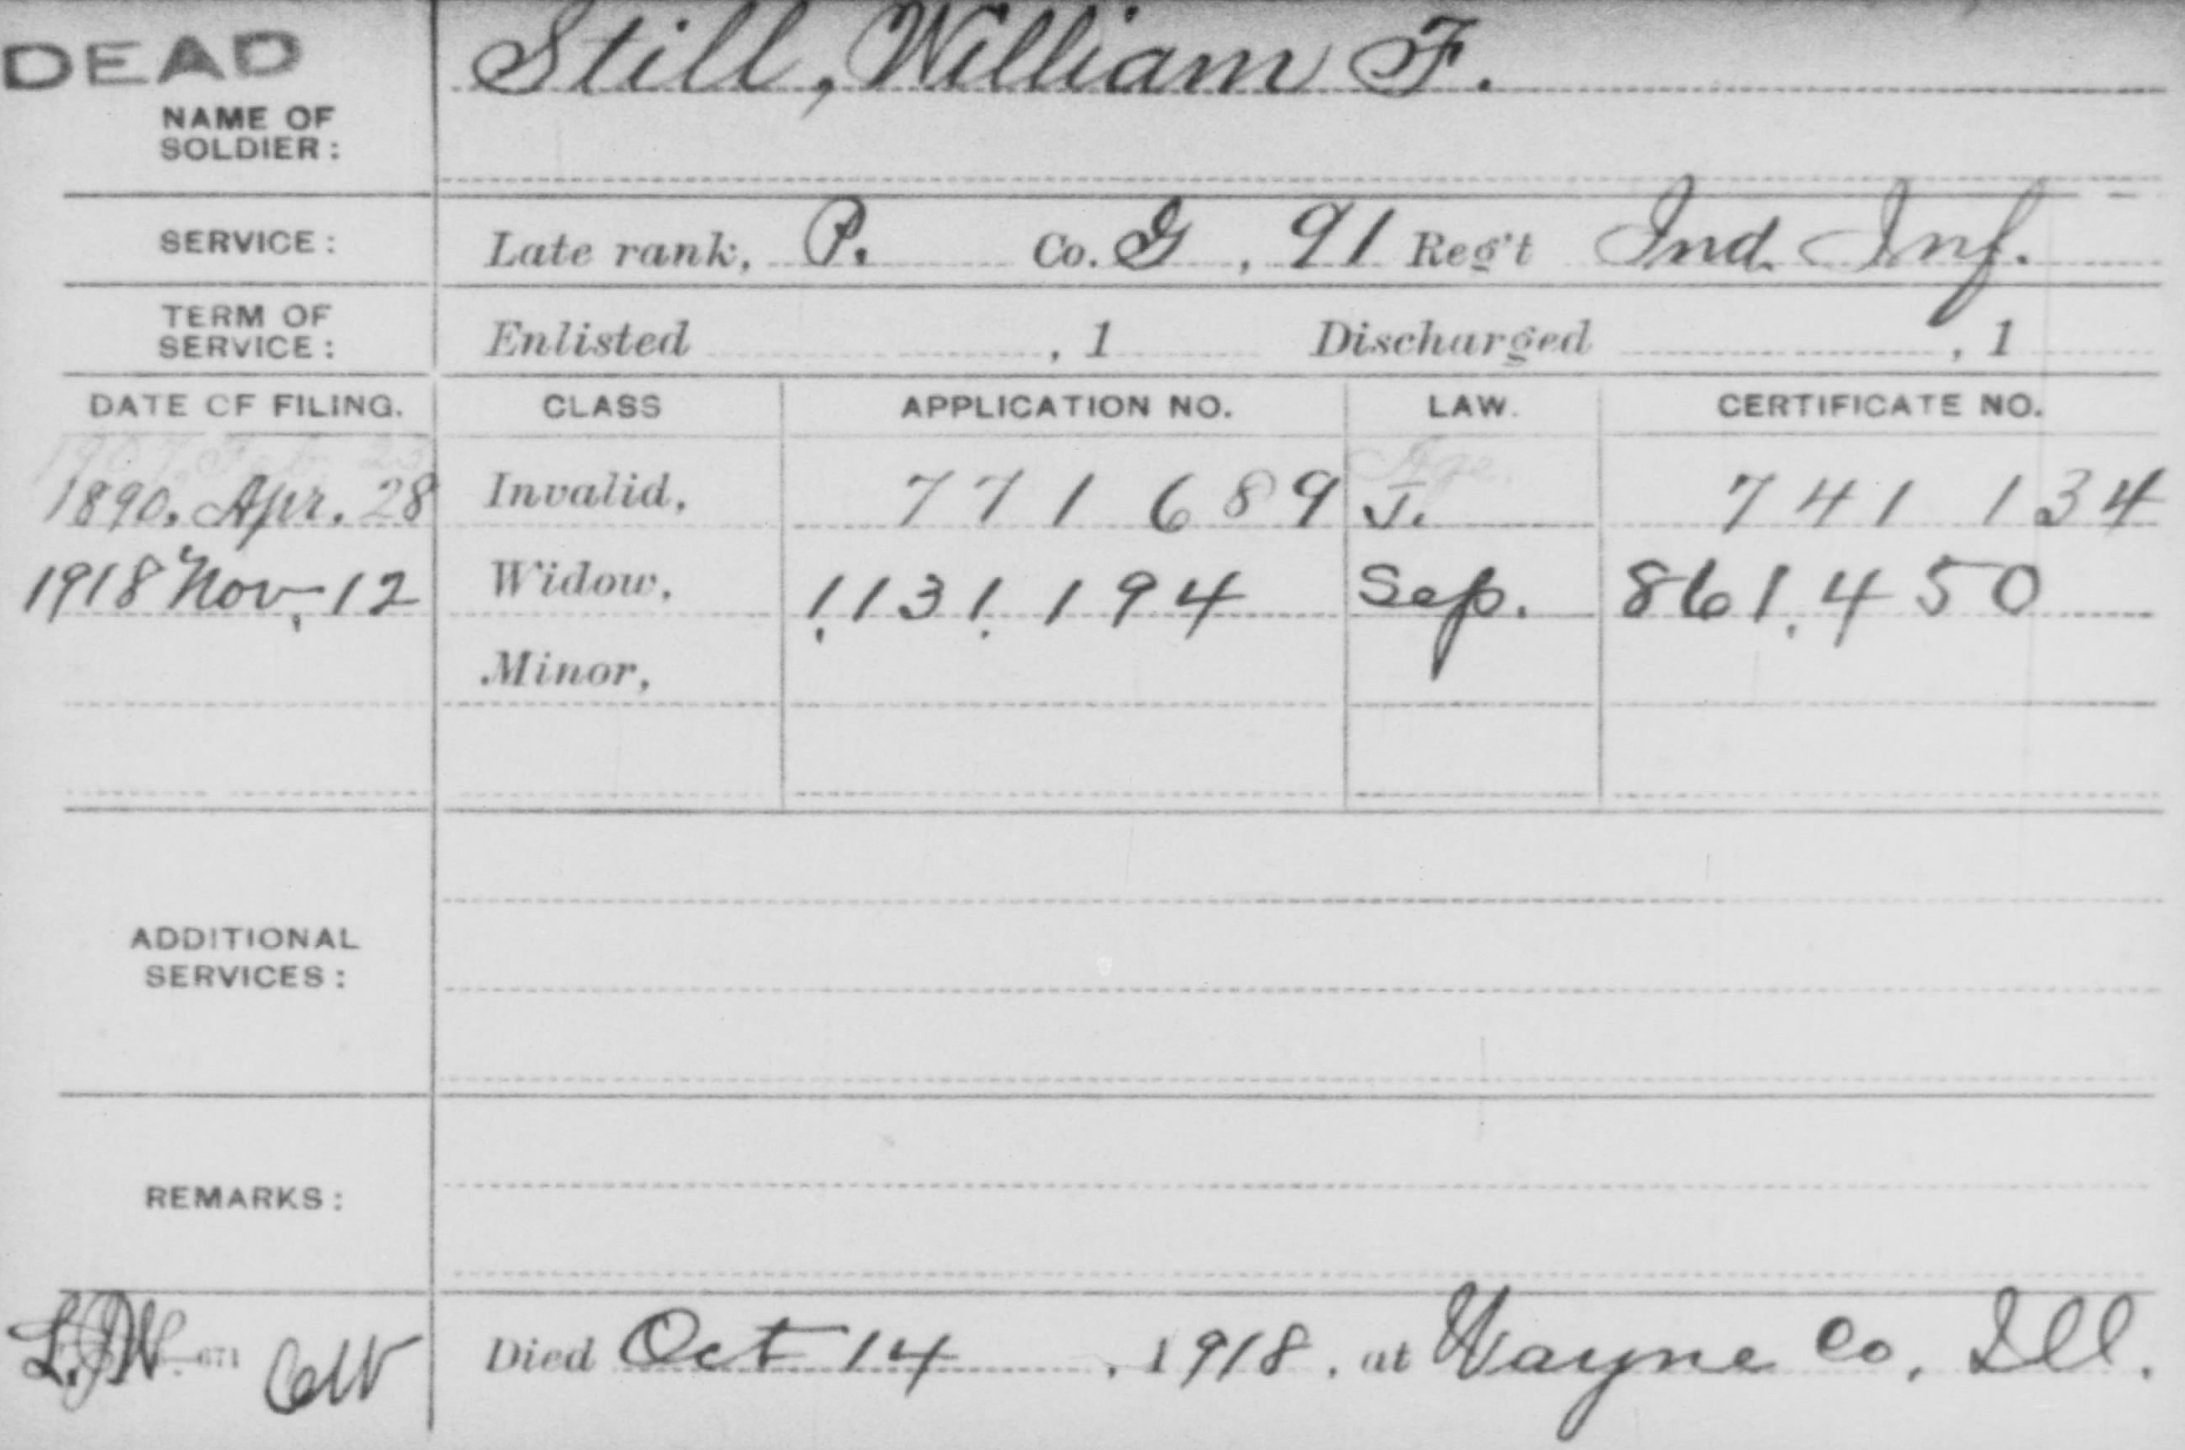 DEAD
Still, William F.
NAME OF
SOLDIER:
SERVICE: Late rank, P. Co. G, 91 Reg't Ind. Inf.
TERM OF
SERVICE: Enlisted , 1 Discharged , 1
DATE OF FILING. CLASS APPLICATION NO. LAW. CERTIFICATE NO.
1907, Feb. 23 Age.
1890, Apr. 28 Invalid, 771 689 J. 741 134
1918 Nov, 12 Widow, 1,131,194 Sep. 861,450
Minor,
ADDITIONAL
SERVICES:
REMARKS:
671 Died Oct 14, 1918, at Wayne Co, Ill.